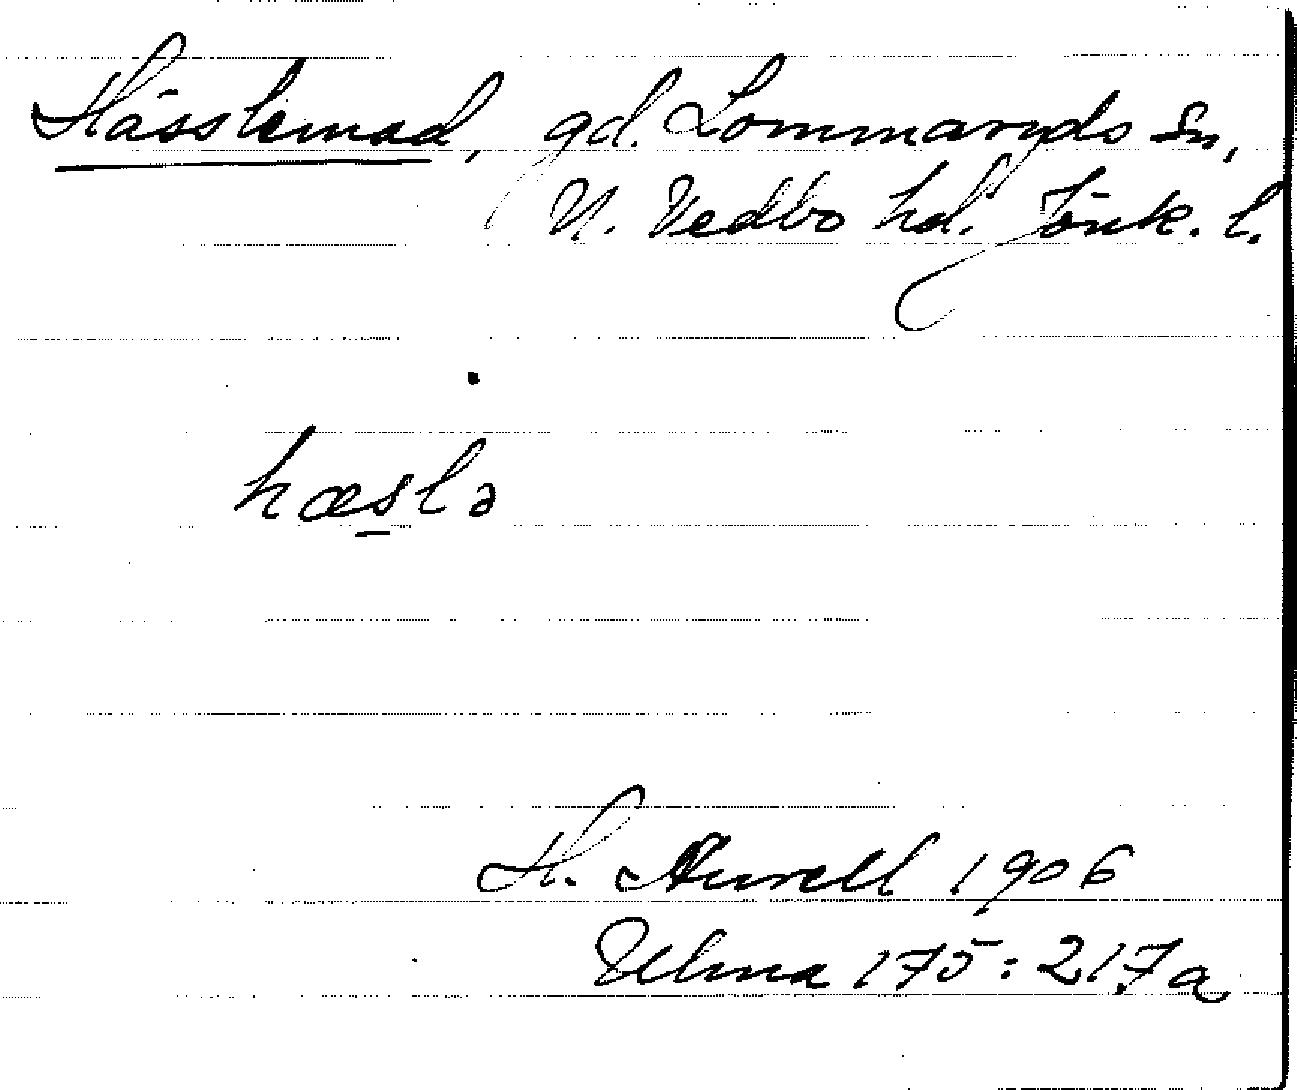 Hässlemad, gd. Lommaryds sn,
N. Vedbo hd. Jönk. l.
hæslə
H. Aurell 1906
Ulma 175:217a